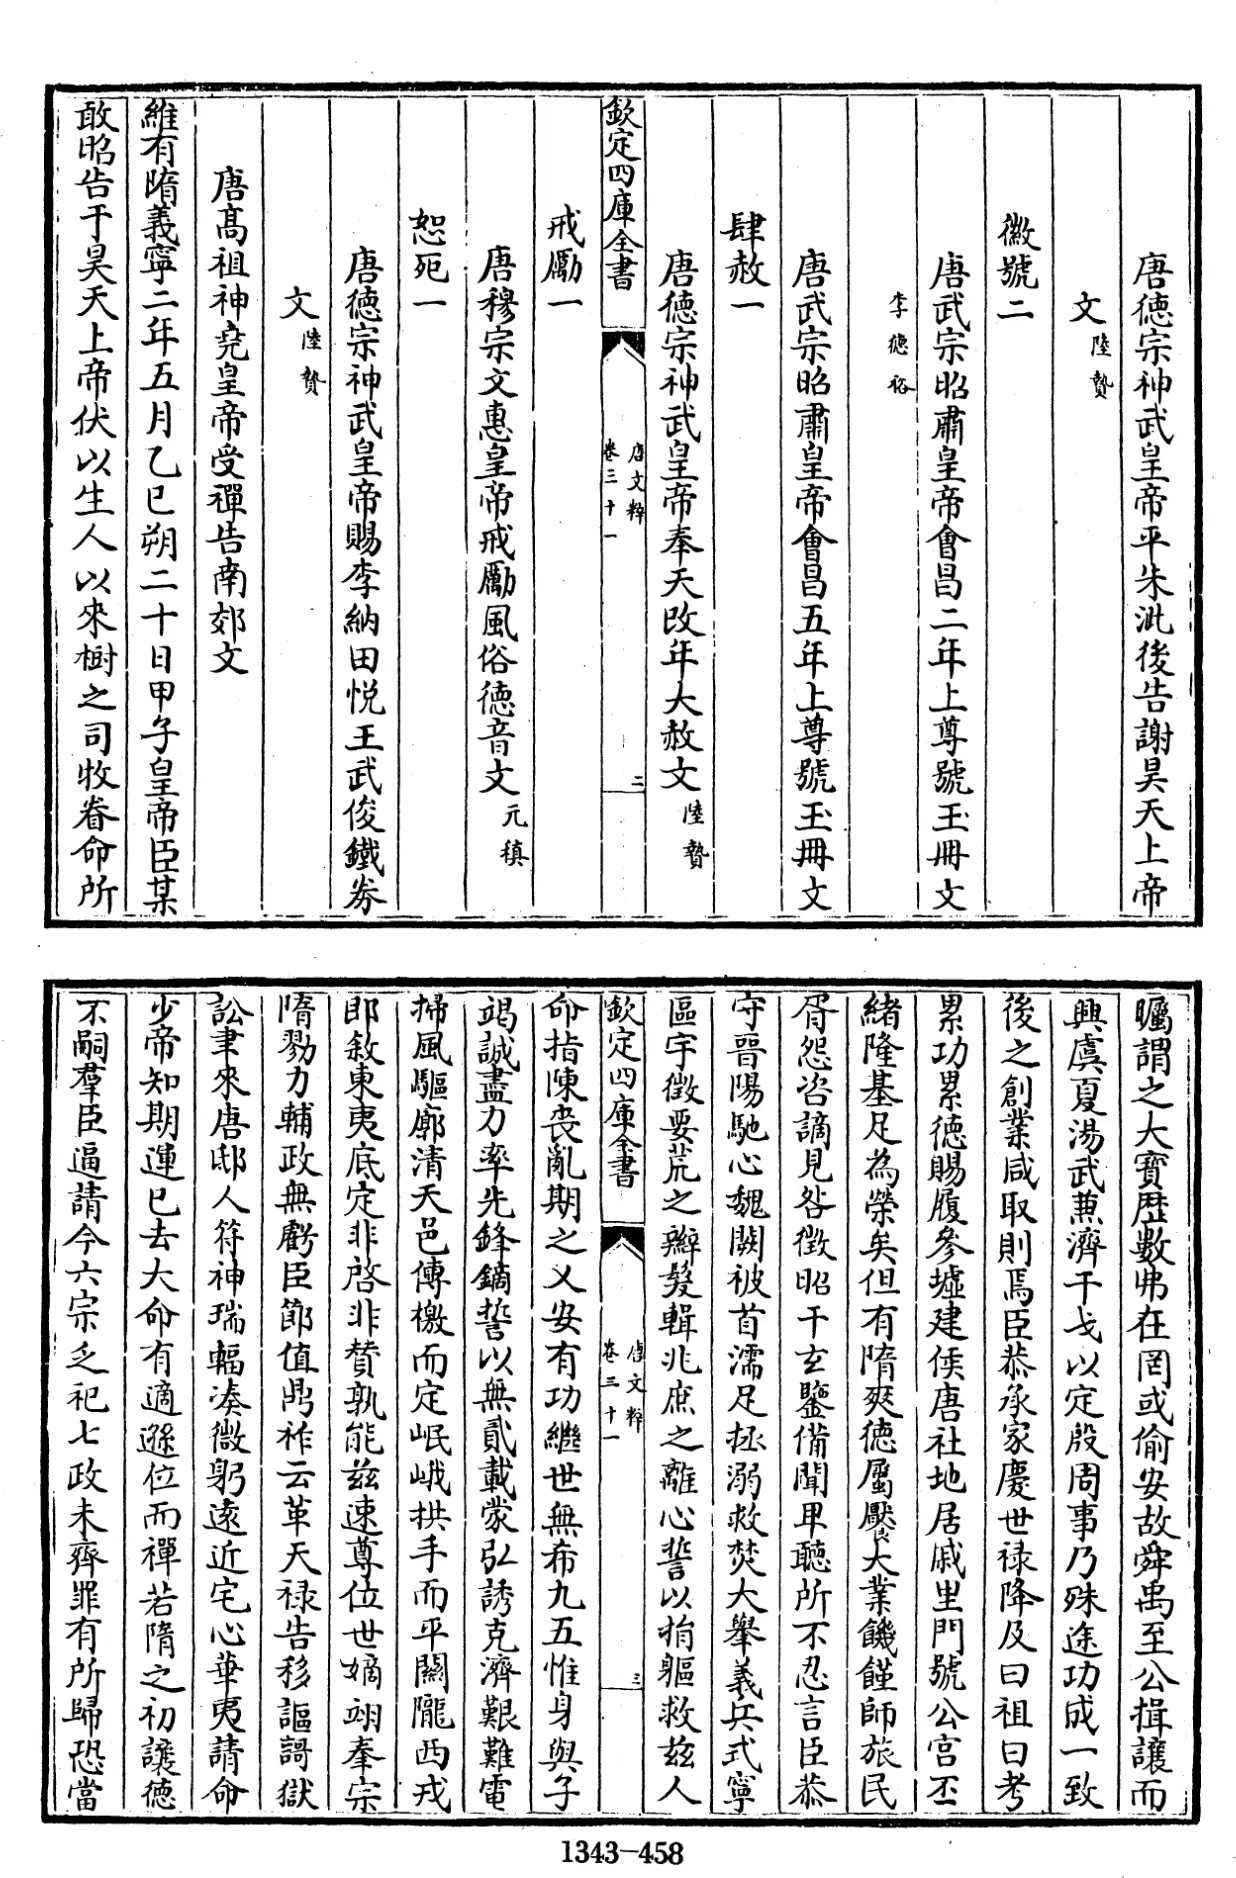 唐德宗神武皇帝平朱泚後告謝昊天上帝
文陸贄
徽號二
唐武宗昭肅皇帝會昌二年上尊號玉冊文
李德裕
唐武宗昭肅皇帝會昌五年上尊號玉冊文
肆赦一
唐德宗神武皇帝奉天改年大赦文陸贄
欽定四庫全書
唐文粹
卷三十一
二
戒勵一
唐穆宗文惠皇帝戒勵風俗德音文元稹
恕死一
唐德宗神武皇帝賜李納田悅王武俊鐵券
文陸贄
唐髙祖神堯皇帝受禪告南郊文
維有隋義寧二年五月乙巳朔二十日甲子皇帝臣某
敢昭告于昊天上帝伏以生人以來樹之司牧眷命所
矚謂之大寳歴數弗在罔或偷安故舜禹至公揖讓而
興虞夏湯武兼濟干戈以定殷周事乃殊途功成一致
後之創業咸取則焉臣恭承家慶世禄降及曰祖曰考
累功累德賜履參墟建侯唐社地居戚里門號公宫丕
緒隆基足為榮矣但有隋爽德屬厭大業饑饉師旅民
胥怨咨謫見咎徵昭于玄鑒備聞卑聽所不忍言臣恭
守晉陽馳心魏闕被首濡足拯溺救焚大舉義兵式寧
區宇徵要荒之辮髮輯兆庶之離心誓以捐軀救兹人
欽定四庫全書
唐文粹
卷三十一
三
命指陳喪亂期之乂安有功繼世無希九五惟身與子
竭誠盡力率先鋒鏑誓以無貳載䝉弘誘克濟艱難電
掃風驅廓清天邑傳檄而定岷峨拱手而平關隴西戎
即敘東夷底定非啓非賛孰能兹速尊位世嫡翊奉宗
隋勠力輔政無虧臣節值鼎祚云革天禄告移謳謌獄
訟聿來唐邸人符神瑞輻湊微躬逺近宅心華夷請命
少帝知期運已去大命有適遜位而禪若隋之初讓徳
不嗣羣臣逼請今六宗乏祀七政未齊罪有所歸恐當
1343-458